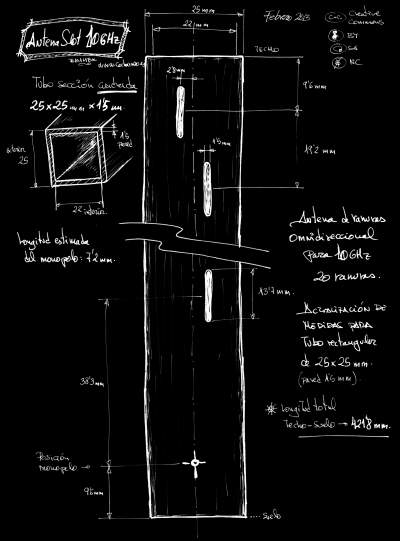 Antena Slot 10GHz
Tubo sección cuadrada
25x25 mm x 1'5 mm
exterior
25
1'5
pared
22 interior
Longitud estimada
del monopolo: 7'2 mm.
Posición
monopolo
25 mm
22 mm
TECHO
2'8 mm
1'5 mm
9'6 mm
19'2 mm
13'7 mm.
38'3 mm
suelo
Febrero 2013
Creative
Commons
BY
SA
NC
Antena de ranuras
Omnidireccional
para 10GHz
20 ranuras.
Actualización de
medidas para
Tubo rectangular
de 25x25 mm.
(pared 1'5 mm).
* Longitud total
Techo-Suelo → 421'8 mm.